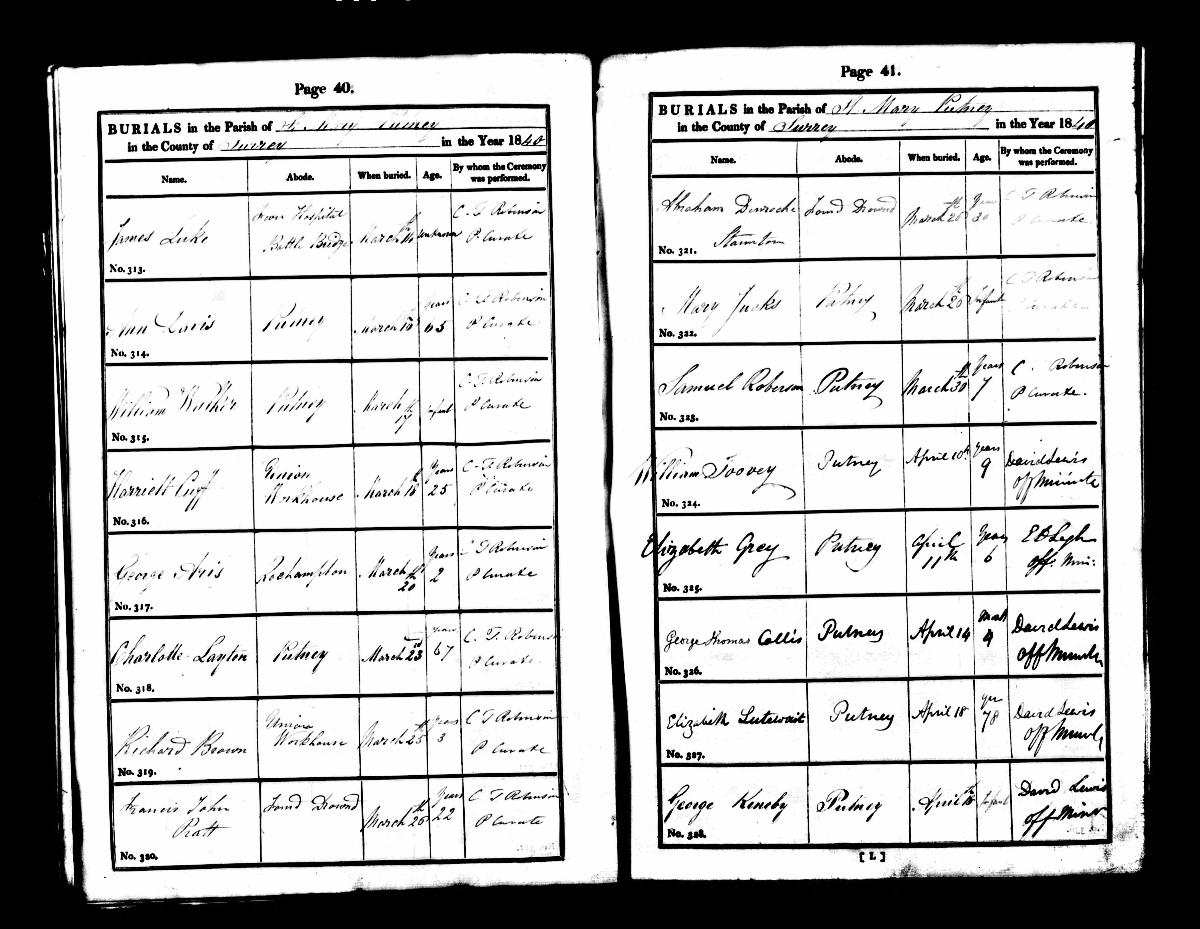 Page 40.
BURIALS in the Parish of St Mary Putney
in the County of Surrey in the Year 1840
Name. Abode. When buried. Age. By whom the Ceremony was performed.
James Luke Fever Hospital Battle Bridge March 14 Unknown C. T. Robinson P Curate
No. 313.
Ann Davis Putney March 16 years 65 C. T. Robinson P Curate
No. 314.
William Walker Putney March 17th Infant C. T. Robinson P Curate
No. 315.
Harriett Cuff Union Workhouse March 18 Years 25 C. T. Robinson P Curate
No. 316.
George Aris Roehampton March 20th Years 2 C T Robinson P Curate
No. 317.
Charlotte Layton Putney March 23 years 67 C. T. Robinson P Curate
No. 318.
Richard Brown Union Workhouse March 25th years 3 C T Robinson P Curate
No. 319.
Francis John Pratt Found Drownd March 26th Years 22 C T Robinson P Curate
No. 320.
Page 41.
BURIALS in the Parish of St Mary Putney
in the County of Surrey in the Year 1840
Name. Abode. When buried. Age. By whom the Ceremony was performed.
Abraham Staunton Found Drownd March 26th Years 30 C T Robinson P Curate
No. 321.
Mary Jucks Putney March 28th Infant C T Robinson P Curate
No. 322.
Samuel Roberson Putney March 30th Years 7 C. Robinson P Curate.
No. 323.
William Toovey Putney April 10th Years 9 David Lewis off Minister
No. 324.
Elizabeth Grey Putney April 11th Years 6 off: Min:
No. 325.
George Thomas Collis Putney April 14 4 David Lewis off Minister
No. 326.
Elizabeth Lutewait Putney April 18 yrs 78 David Lewis off Minist
No. 327.
George Keneby Putney April 18th Infant David Lewis off Minr
No. 328.
[L]